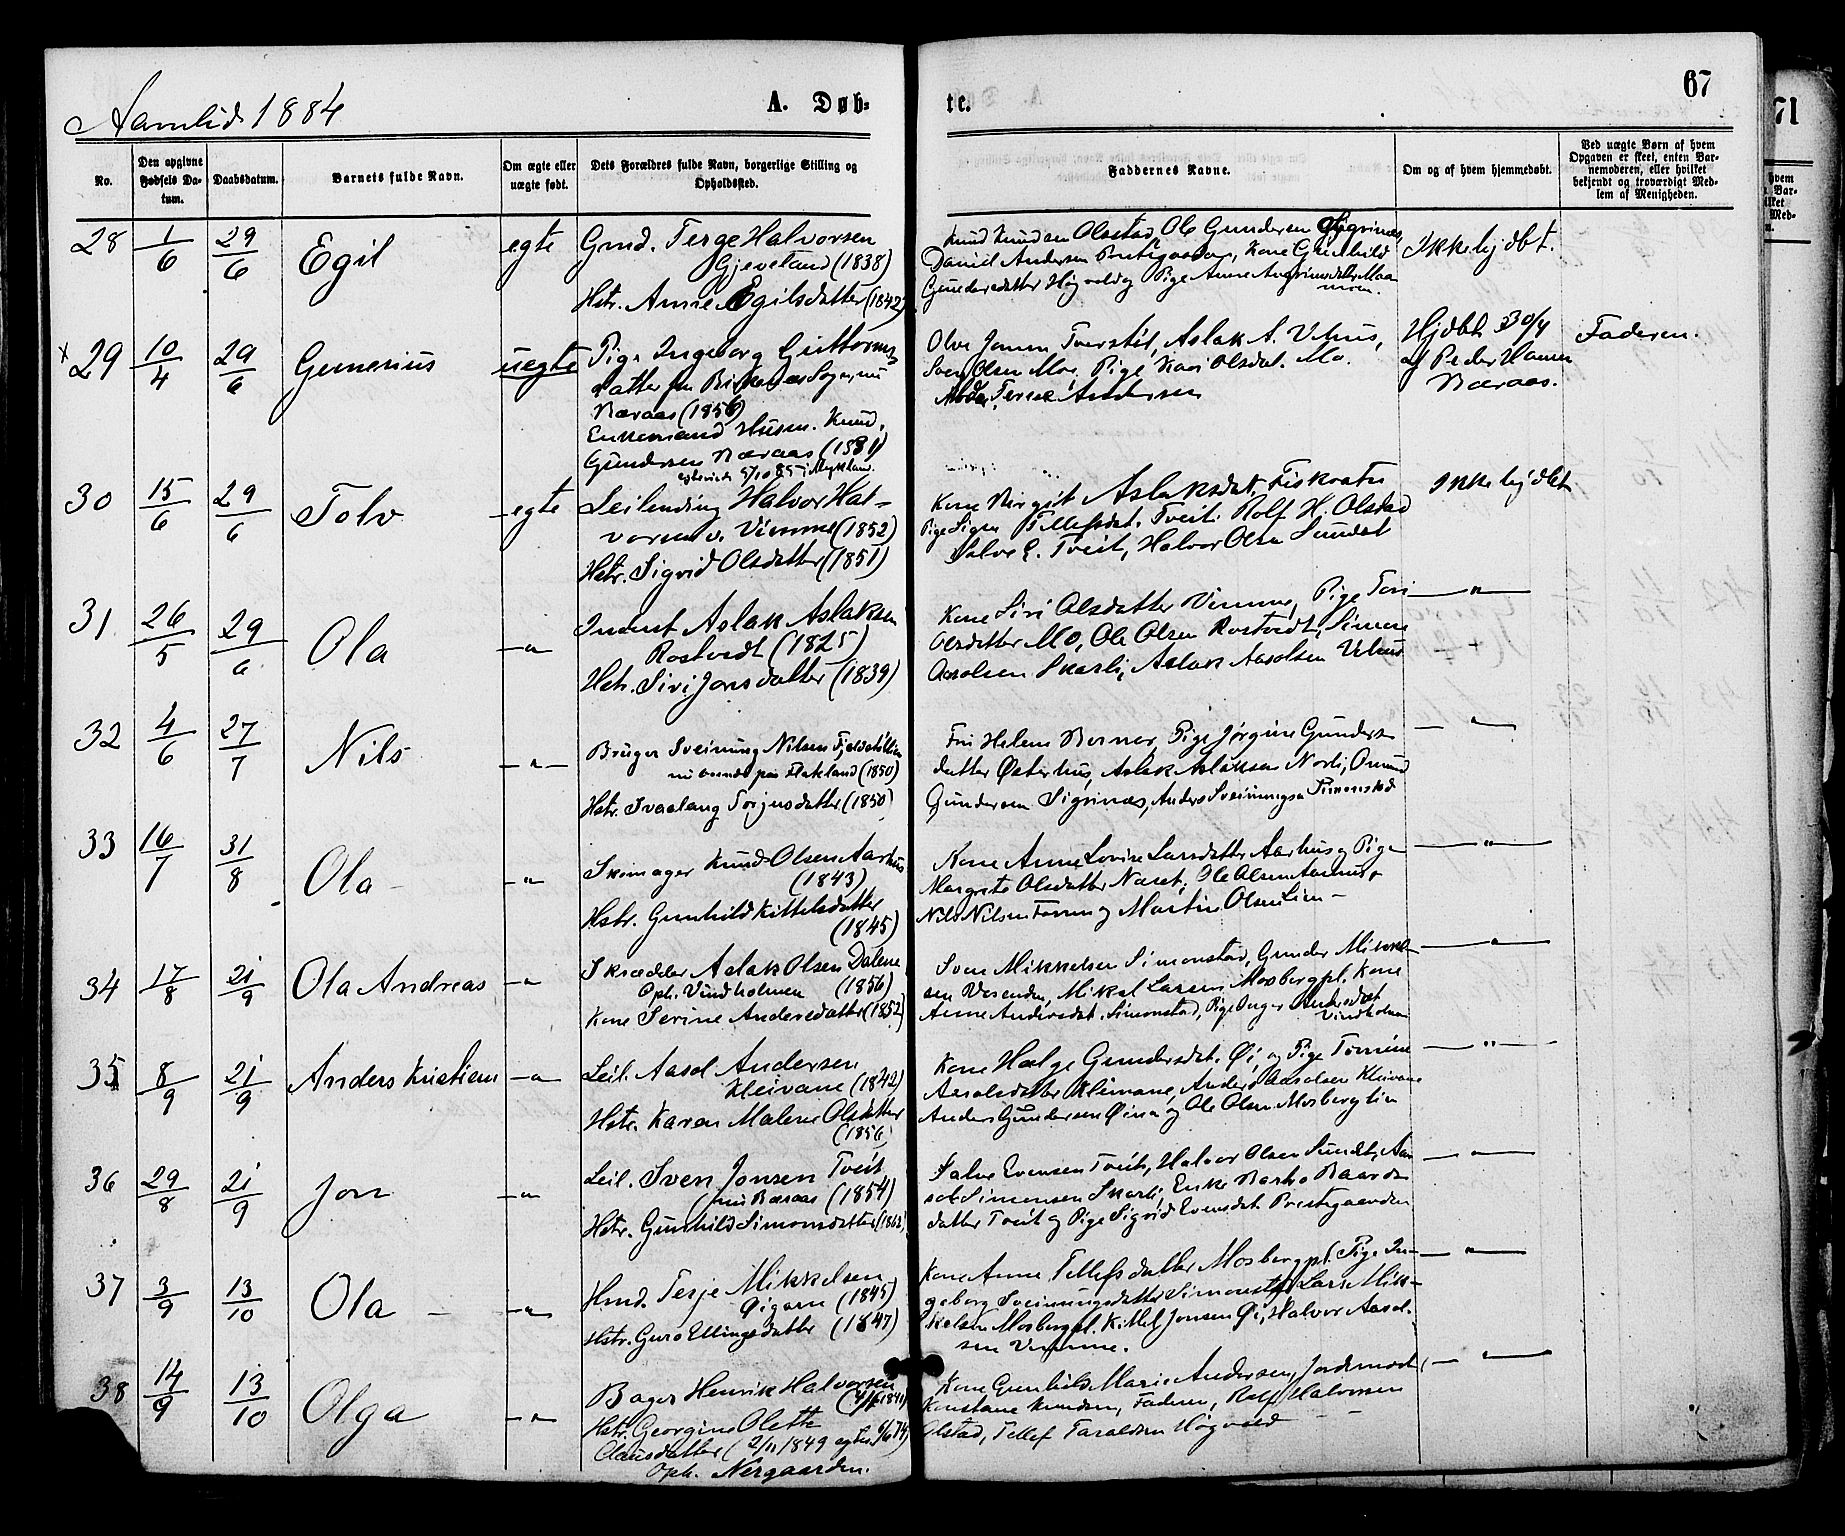 Aamlid 1884
A. Døb-
te.
67
71
No.
Den opgivne Fødsels Da-tum.
Daabsdatum.
Barnets fulde Navn.
Om ægte eller uægte født.
Dets Forældres fulde Navn, borgerlige Stilling og Opholdssted.
Faddernes Navne.
Om og af hvem hjemmedøbt.
Ved uægte Børn af hvem Opgaven er skeet, enten Bar-nemoderen, eller hvilket bekjendt og troværdigt Med-lem af Menigheden.
28 1/6 29/6 Egil egte
Gmd. Terge Halvorsen
Gjeveland (1838)
Hstr. Anne Egilsdatter (1842)
Knud Knudsen Olstad, Ole Gundersen
Daniel Andersen Kone Gunhild
Gundersdatter Høgvold og Pige Anne
Ikke hjdbt.
x 29 10/4 29/6 Gunerius uegte
Pige Ingeborg Guttorms
datter fra Birkenæs Sogn, nu
Næraas (1856)
Enkemand Husm. Knud
Gundersen Næraas (1831)
Olve Jonsen Tveit, Aslak A. Vehus,
Sven Olsen Mo, Pige Kari Olsdat. Mo.
Terese Andersen
Hjdbt 30/4
af Peder Hansen
Næraas.
Faderen.
30 15/6 29/6 Tolv egte
Leilending Halvor Hal-
vorsen Vimme (1852)
Hstr. Sigrid Olsdatter (1851)
Kone Birgit Aslaksdat. Fiskvatn
Pige Signe Tellefsdat. Tveit. Rolf H. Olstad
Salve E. Tveit, Halvor Olsen Sundet
Ikke hjdbt
31 26/5 29/6 Ola —„—
Inderst Aslak Aslaksen
Rostvedt (1825)
Hstr. Siri Jonsdatter (1839)
Kone Siri Olsdatter Vimme, Pige Tori
Olsdatter Mo, Ole Olsen Rostvedt, Simon
Aasolsen Skarli, Aslak Aasolsen Vehus
—„—
32 4/6 27/7 Nils —„—
Bruger Sveinung Nilsen
nu boende paa Flakland (1850)
Hstr. Svaalaug Torjusdatter (1850)
Frk Helene Berner, Pige Jørgine Gunders
datter Østerhus, Aslak Aslaksen Norli, Omund
Gundersen Sigrinæs, Anders Sveinungsen Simonstad
—„—
33 16/7 31/8 Ola —„—
Skomager Knud Olsen Aarhus
(1843)
Hstr. Gunhild Kittelsdatter
(1845)
Kone Anne Lovise Larsdatter Aarhus og Pige
Margrete Olsdatter Næset, Ole Olsen Aarhus,
Nils Nilsen og Martin Olsen Lien —
—„—
34 17/8 21/9 Ola Andreas —„—
Skrædder Aslak Olsen Dalene
Oph. Vindholmen (1856)
Kone Serine Andersdatter (1852)
Sven Mikkelsen Simonstad, Gunder Mikkel-
sen Vesenden, Mikal Larsen Mosbergpl. Kone
Anne Andersdat. Simonstad, Pige Inger Andersdat
Vindholmen
—„—
35 8/9 21/9 Anders Kristian —„—
Leil. Aasol Andersen
Kleivane (1842)
Hstr. Karen Malene Olsdatter
(1856)
Kone Helge Gundersdat. Øi, og Pige Tomine
Aasolsdatter Kleivane, Anders Aasolsen Kleivane
Anders Gundersen Øina og Ole Olsen Mosberglien
—„—
36 29/8 21/9 Jon —„—
Leil. Sven Jonsen Tveit
(nu Beraas (1854)
Hstr. Gunhild Simonsdatter
Salve Evensen Tveit, Halvor Olsen Sundet, Aa-
sol Simonsen Skarli, Enke Barbo Baards
datter Tveit og Pige Sigrid Evensdat. Prestegaarden
—„—
37 3/9 13/10 Ola —„—
Hmd. Terje Mikkelsen
Øigarn (1845)
Hstr. Guro Ellingsdatter (1847)
Kone Anne Tellefsdatter Mosbergpl. Pige In-
geborg Sveinungsdatter Simonstad, Lars Mik-
kelsen Mosbergpl. Kittel Jonsen Øi, Halvor Aasol-
sen Vimme.
—„—
38 14/9 13/10 Olga —„—
Bager Henrik Halvorsen
Hstr. Georgine Olette
Clausdatter (2/11 1849
Oph. Nergaarden.
Kone Gunhild Marie Andersen, Jordmod(
Konstane Knudsen, Faderen, Rolf Halvorsen
Olstad, Tellef Taraldsen Høgvold
—„—